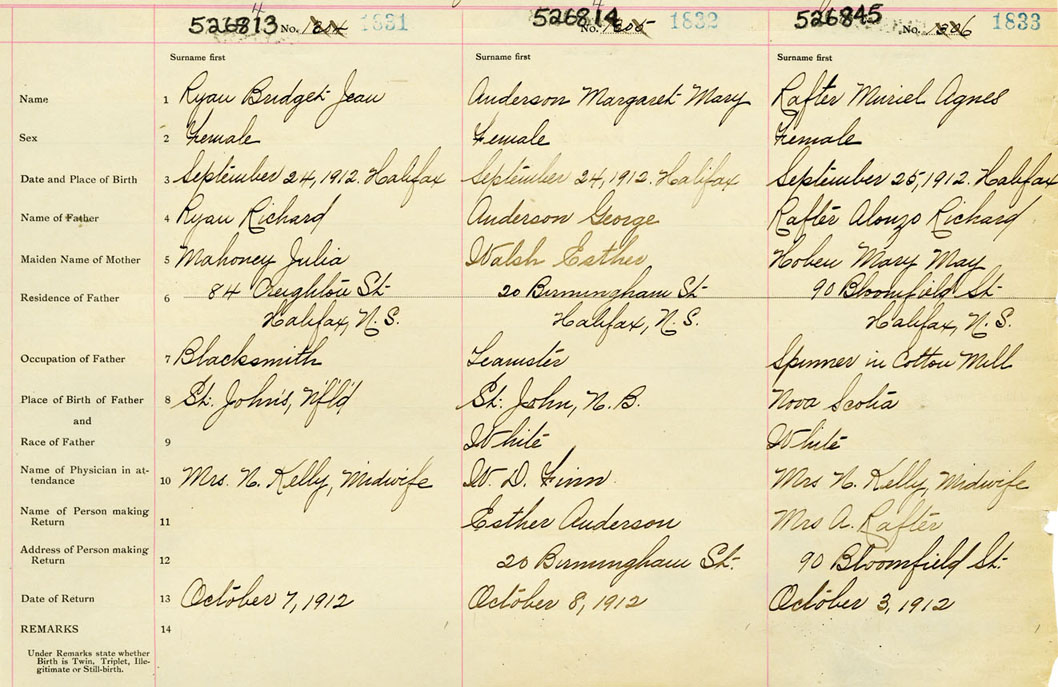 526813 No. 1831 526814 No. 1832 526845 No. 1833
Surname first Surname first Surname first
Name 1 Ryan Bridget Jean Anderson Margaret Mary Rafter Muriel Agnes
Sex 2 Female Female Female
Date and Place of Birth 3 September 24, 1912. Halifax September 24, 1912. Halifax September 25, 1912. Halifax
Name of Father 4 Ryan Richard Anderson George Rafter Alonzo Richard
Maiden Name of Mother 5 Mahoney Julia Walsh Esther Hoben Mary May
Residence of Father 6 84 Creighton St. 20 Birmingham St. 90 Bloomfield St.
Halifax, N.S. Halifax, N.S. Halifax, N.S.
Occupation of Father 7 Blacksmith Teamster Spinner in Cotton Mill
Place of Birth of Father 8 St. John's, Nfld St. John, N.B. Nova Scotia
and
Race of Father 9 White White
Name of Physician in at-
tendance 10 Mrs. N. Kelly, Midwife W. D. Finn Mrs N. Kelly, Midwife
Name of Person making
Return 11 Esther Anderson Mrs A. Rafter
Address of Person making
Return 12 20 Birmingham St. 90 Bloomfield St.
Date of Return 13 October 7, 1912 October 8, 1912 October 3, 1912
REMARKS 14
Under Remarks state whether
Birth is Twin, Triplet, Ille-
gitimate or Still-birth.